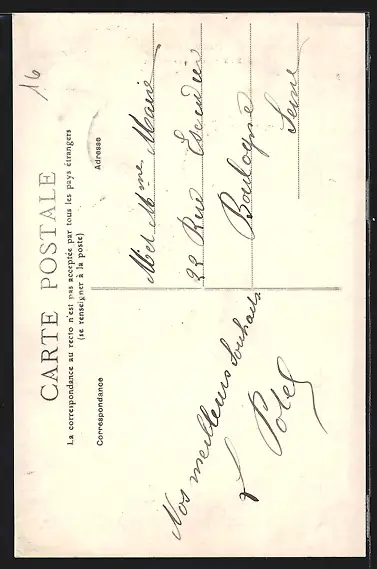 16
CARTE POSTALE
La correspondance au recto n'est pas acceptée par tous les pays étrangers
(se renseigner à la poste)
Correspondance
Adresse
Nos meilleurs Souhaits
Potel
M et Mme Marie
22 Rue Escudier
Boulogne
Seine